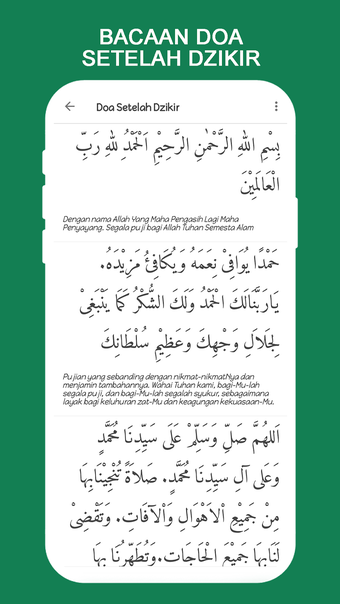 BACAAN DOA
SETELAH DZIKIR
Doa Setelah Dzikir
بِسْمِ اللهِ الرَّحْمٰنِ الرَّحِيْمِ اَلْحَمْدُ لِلهِ رَبِّ
الْعَالَمِيْنَ
Dengan nama Allah Yang Maha Pengasih Lagi Maha
Penyayang. Segala puji bagi Allah Tuhan Semesta Alam
حَمْدًا يُوَافِيْ نِعَمَهُ وَيُكَافِئُ مَزِيْدَهُ.
يَارَبَّنَالَكَ الْحَمْدُ وَلَكَ الشُّكْرُ كَمَا يَنْبَغِيْ
لِجَلَالِ وَجْهِكَ وَعَظِيْمِ سُلْطَانِكَ
Pujian yang sebanding dengan nikmat-nikmatNya dan
menjamin tambahannya. Wahai Tuhan kami, bagi-Mu-lah
segala puji, dan bagi-Mu-lah segalah syukur, sebagaimana
layak bagi keluhuran zat-Mu dan keagungan kekuasaan-Mu.
اَللهُمَّ صَلِّ وَسَلِّمْ عَلَى سَيِّدِنَا مُحَمَّدٍ
وَعَلَى آلِ سَيِّدِنَا مُحَمَّدٍ. صَلَاةً تُنْجِيْنَابِهَا
مِنْ جَمِيْعِ اْلاَهْوَالِ وَاْلآفَاتِ. وَتَقْضِيْ
لَنَابِهَا جَمِيْعَ الْحَاجَاتِ.وَتُطَهِّرُنَا بِهَا